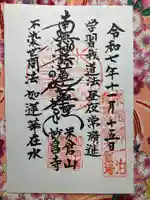 令和七年十一月十五日
学習我道法昼夜常精進
南無妙法蓮華経
倉山
妙昌寺
不染世間法 如蓮華在水